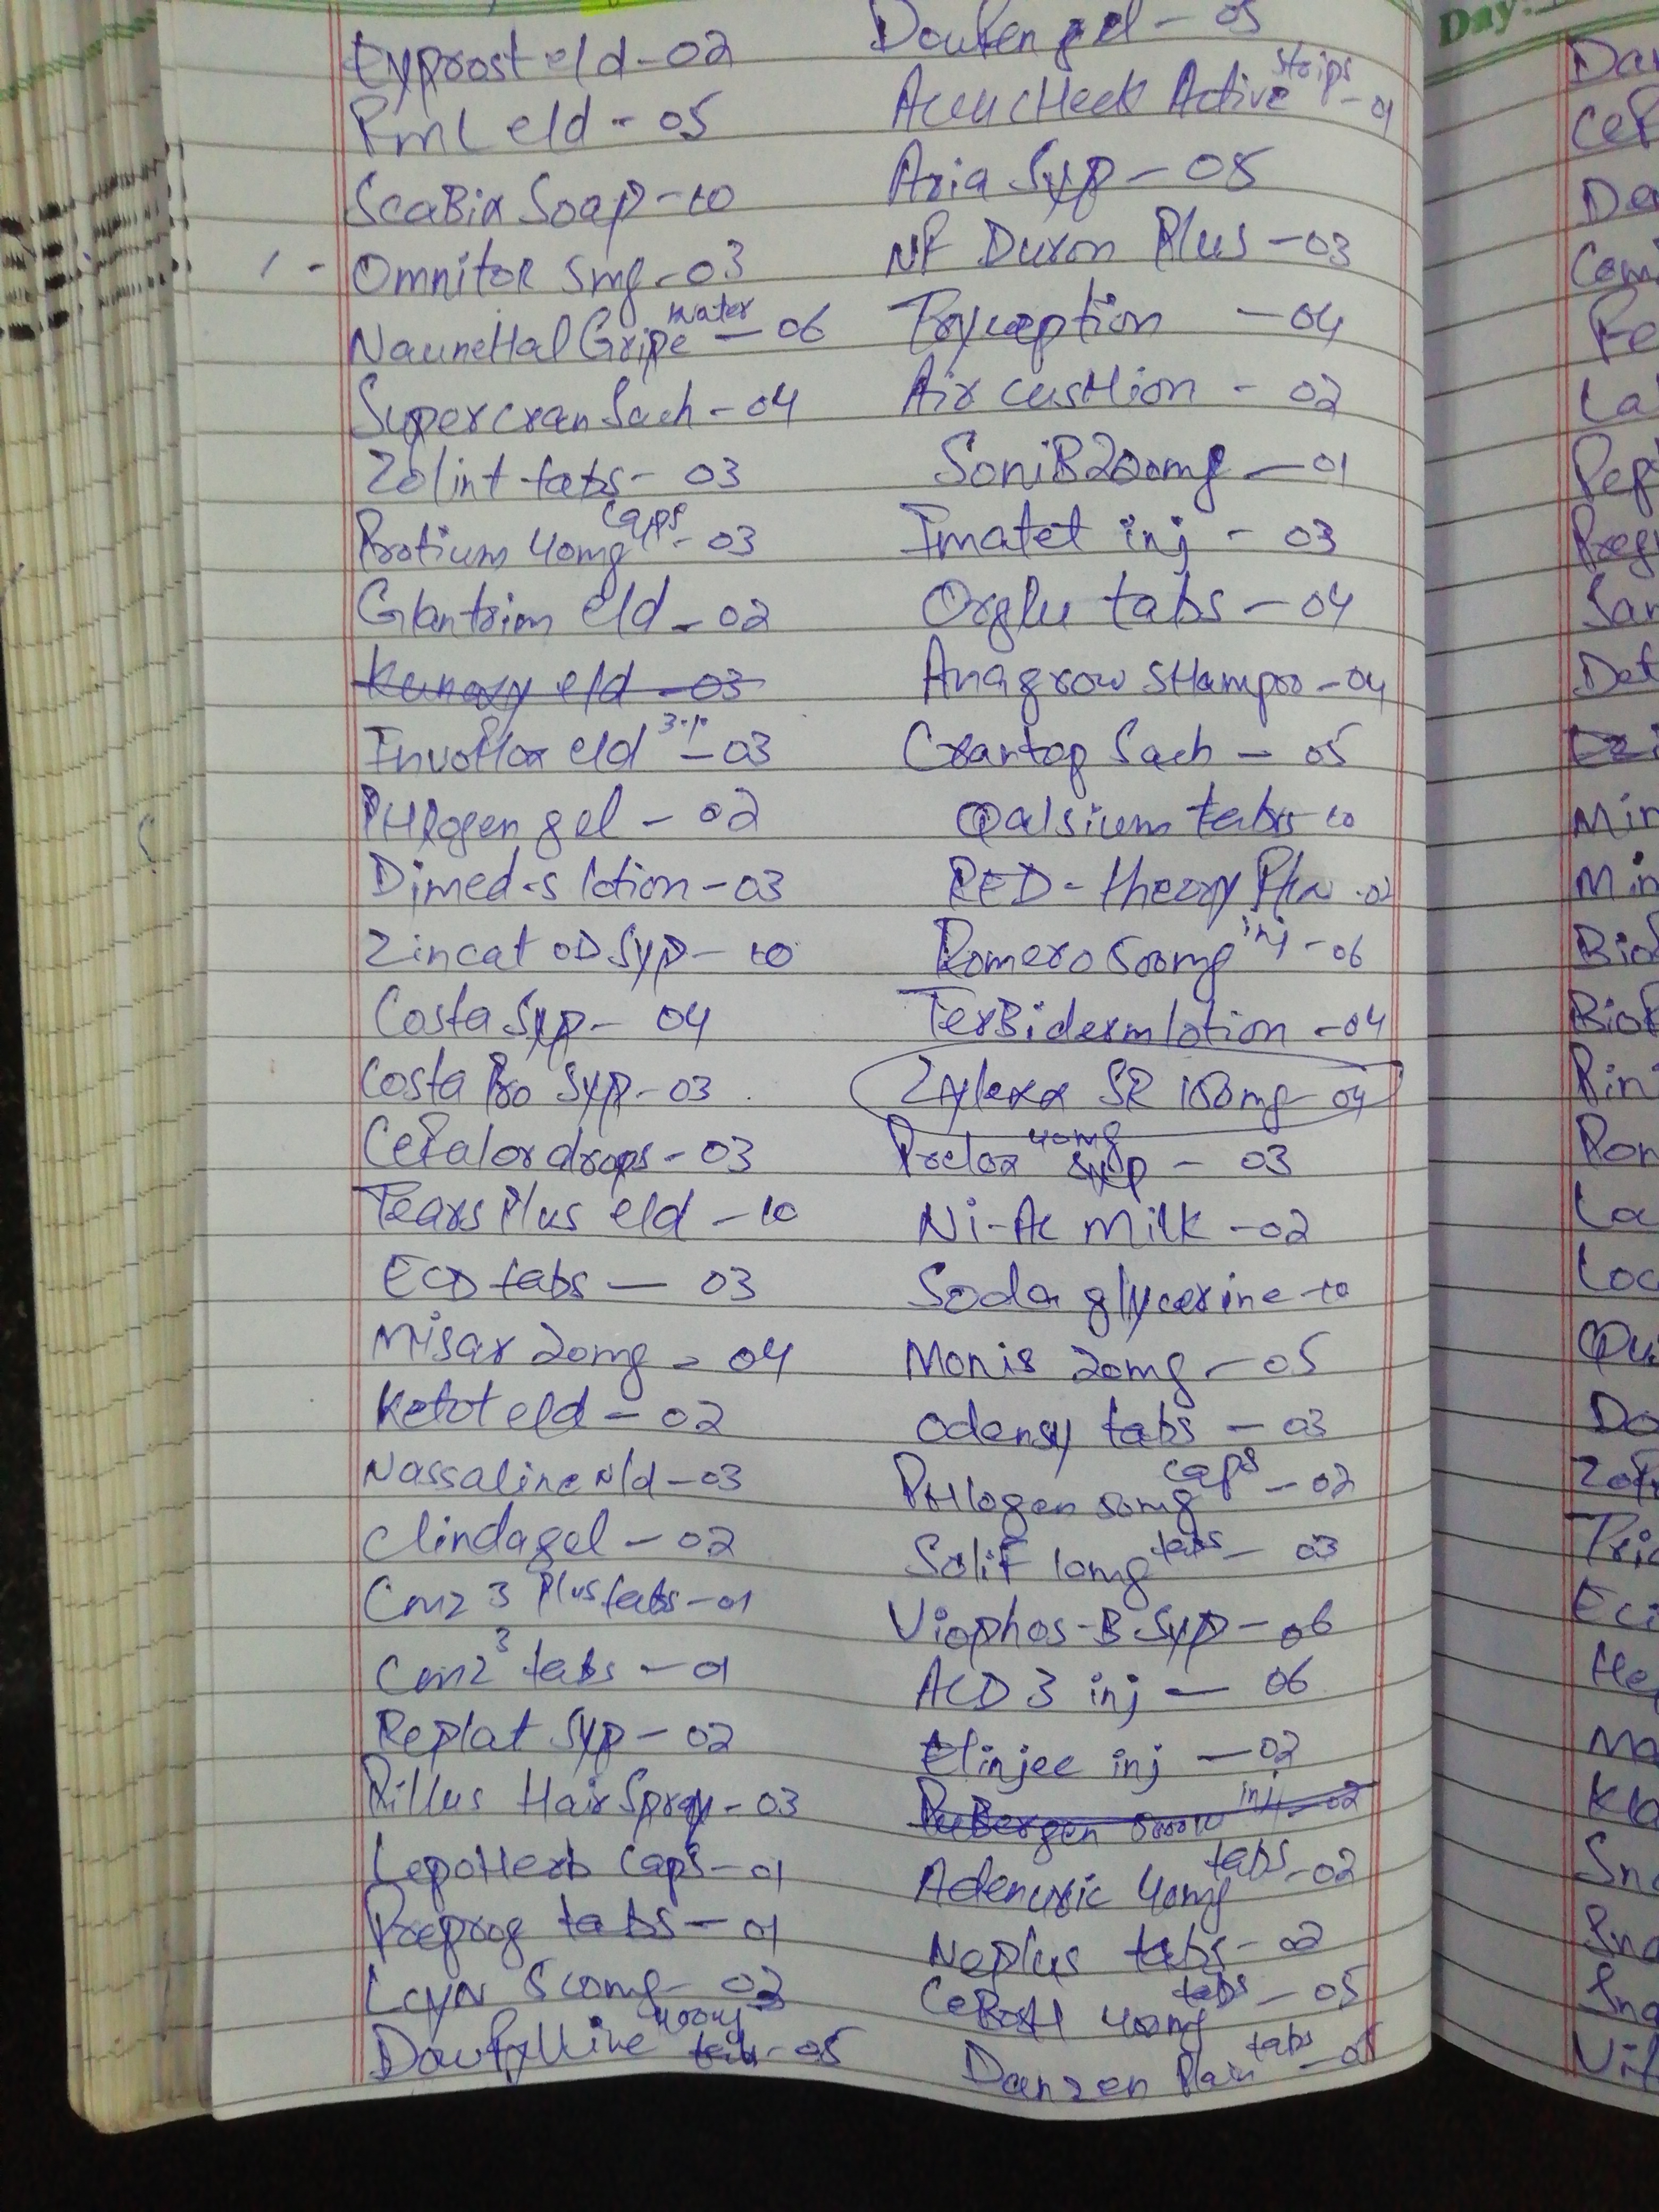 Eyprost eld - 02
FmL eld - 05
ScaBix Soap - 10
1 - Omnitor 5mg - 03
NauneHal Gripe water - 06
Supercran Sach - 04
Zolint tabs - 03
Protium 40mg caps - 03
Glantrim eld - 02
Kunoxy eld - 03
Invoflox eld 3% - 03
PHlogen gel - 02
Dimed-s lotion - 03
Zincat OD Syp - 10
Costa Syp - 04
Costa Pro Syp - 03
Cefalor drops - 03
Tears Plus eld - 10
ECD tabs - 03
Misar 20mg - 04
Ketot eld - 02
Nassaline N/d - 03
Clindagel - 02
Cmz 3 Plus tabs - 01
Cmz 3 tabs - 01
Replat Syp - 02
Pillus Hair Spray - 03
LepoHerb Caps - 01
Preprog tabs - 01
Lcyn 500mg - 02
Dowfylline 400mg tab - 05
Dowfen gel - 05
AccucHeck Active strips - 01
Aria Syp - 05
NF Duron Plus - 03
Tryception - 04
Air cusHion - 02
SoniB 200mg - 01
Imatet inj - 03
Orglu tabs - 04
Anagrow SHampoo - 04
Crantop Sach - 05
Qalsium tabs - 10
RED - theory Pln - 02
Romero 500mg inj - 06
TerBiderm lotion - 04
Zylexa SR 150mg - 04
Prelox 40mg syp - 03
Ni-Ac Milk - 02
Soda glycerine - 10
Monis 20mg - 05
Odensy tabs - 03
PHlogen 50mg caps - 02
Solif 10mg tabs - 03
Viophos-B Syp - 06
ACD 3 inj - 06
Elinjec inj - 02
PuBergen 5000IU inj - 02
Adenuric 40mg tabs - 02
Neplus tabs - 02
CeBosH 400mg tabs - 05
Danzen Plain tabs - 05
Day: